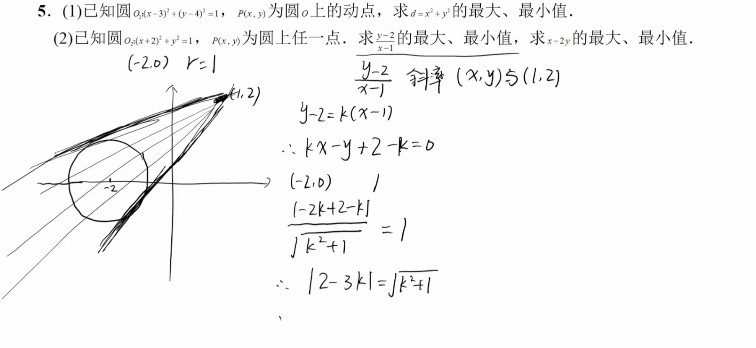 5. (1)已知圆O₁:(x-3)²+(y-4)²=1，P(x,y)为圆O上的动点，求d=x²+y²的最大、最小值.
(2)已知圆O₂:(x+2)²+y²=1，P(x,y)为圆上任一点.求(y-2)/(x-1)的最大、最小值，求x-2y的最大、最小值.
(-2,0) r=1
(y-2)/(x-1) 斜率 (x,y)与(1,2)
(1,2)
y-2=k(x-1)
∴ kx-y+2-k=0
(-2,0) 1
-2
|-2k+2-k|/√(k²+1) =1
∴ |2-3k|=√(k²+1)